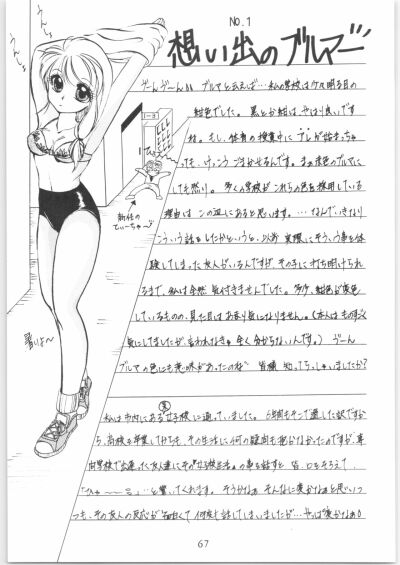 うーんしょ
うーんしょ
No.1
想い出のブルマー
うーんうーん ブルマと云えば…私の学校は
紺色でした。黒とか紺は、やはり良いです
ね。もし、体育の授業中に が始まっちゃ
っても、けっこうごまかせるんです。まあ赤色のブルマに
しても然り。多くの学校がこれらの色を採用している
理由はこの辺にあると思います。…なんでいきなり
こういう話をしたかというと、以前実際にそういう事を体
験してしまった友人がいるんですが、その子に打ち明けられ
るまで、私は全然気付きませんでした。多少、紺色が変色
しているものの、見た目はあまり気になりません。(本人はものすごく
気にしてましたが、言われなきゃ全く分からないんです。)うーん
ブルマの色にも意味があったのね 皆様知ってらっしゃいましたか?
新任の
てぃーちゃー
暑いよ〜
私は市内にある女子校に通っていました。6年間もそこで過した訳ですか
ら、高校を卒業してからも、その生活に何の疑問も抱かなかったのですが、専
門学校で出逢った友人達にその女子校生活の事を話すと、皆、口をそろえて、
…と驚いてくれます。そうかなぁ そんなに変かなぁと思いつ
つも、その友人の反応が面白くて何度も話してしまいましたが…やっぱ変かなぁ
67